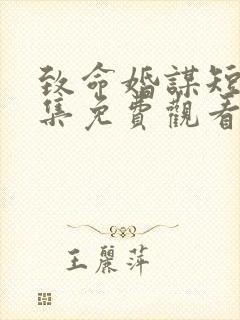 致命婚謀短
集免費觀看
王麗萍